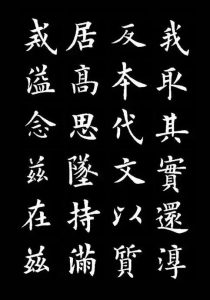 我取其實還淳
反本代文以質
居髙思墜持滿
戒溢念茲在茲